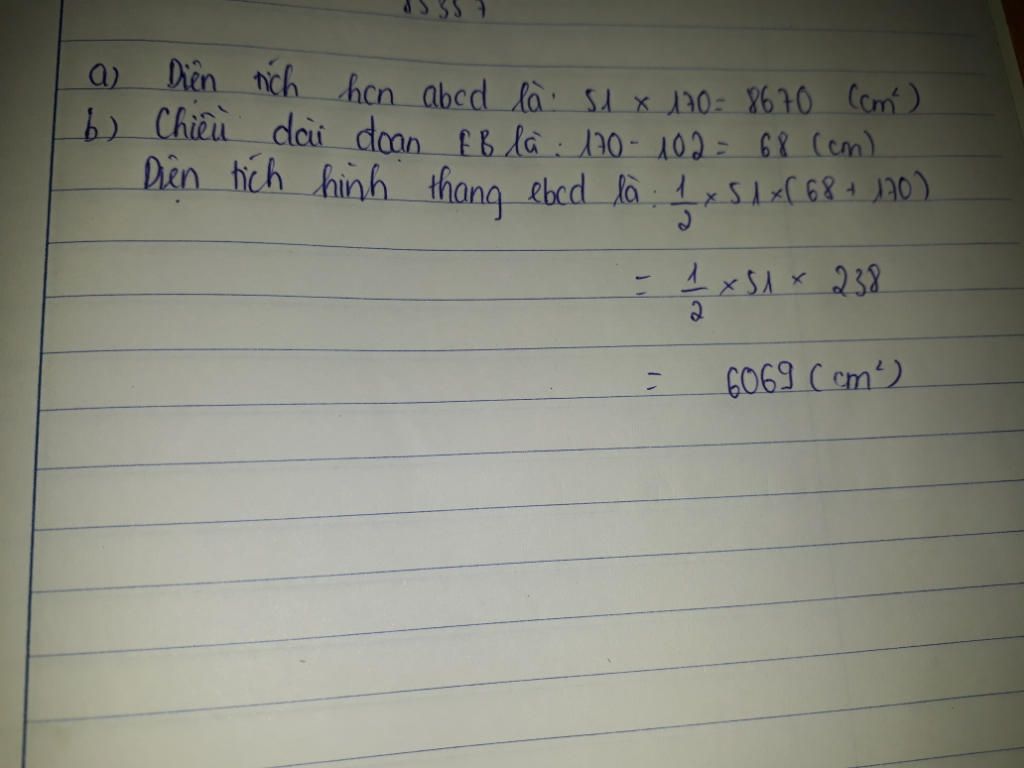 a) Diện tích hcn abcd là: 51 × 170 = 8670 (cm²)
b) Chiều dài đoạn EB là: 170 - 102 = 68 (cm)
Diện tích hình thang ebcd là: 1/2 × 51 × (68 + 170)
= 1/2 × 51 × 238
= 6069 (cm²)